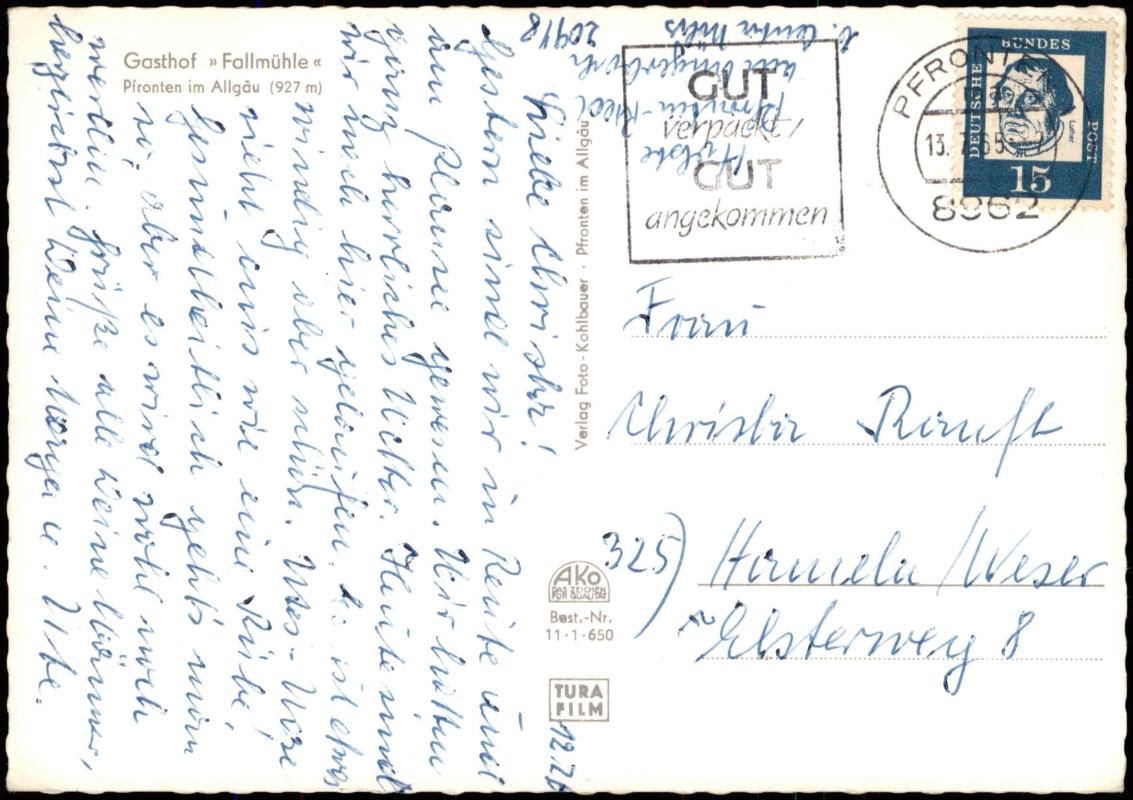 Gasthof » Fallmühle «
Pfronten im Allgäu (927 m)
12.7.6
Liebe Christa!
Gestern sind wir in Reute und
am Plansee gewesen. Wir hatten
ganz herrliches Wetter. Heute sind
wir nach hier gelaufen. Es ist etwas
windig aber schön.
nicht aus wie eine Rübe,
Gesundheitlich geht's mir
so, aber es wird wohl noch
werden. Grüße alle Deine Männer,
herzlichst Deine Marga u. Ute.
Verlag Foto - Kohlbauer · Pfronten im Allgäu
Pfronten-Ried
GUT
verpackt,
GUT
angekommen
PFRONTEN
13. 7. 65
8962
DEUTSCHE BUNDESPOST
Luther
15
Frau
Christa Ranft
325) Hameln/Weser
Elsterweg 8
AKO
DAS ZEICHEN
FÜR QUALITÄT
Best.-Nr.
11·1·650
TURA
FILM